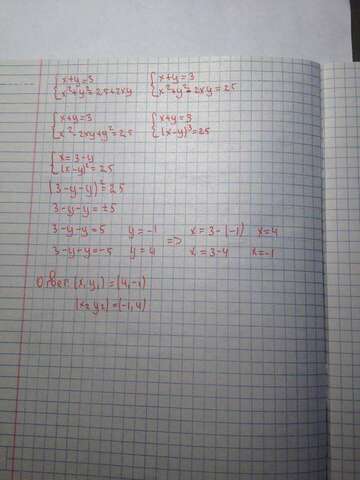 {x+y=3 {x+y=3
{x²+y²=25+2xy {x²+y²-2xy=25
{x+y=3 {x+y=3
{x²-2xy+y²=25 {(x-y)²=25
{x=3-y
{(x-y)²=25
(3-y-y)²=25
3-y-y=±5
3-y-y=5 y=-1 => x=3-(-1) x=4
3-y-y=-5 y=4 x=3-4 x=-1
Ответ (x₁y₁)=(4,-1)
(x₂y₂)=(-1,4)